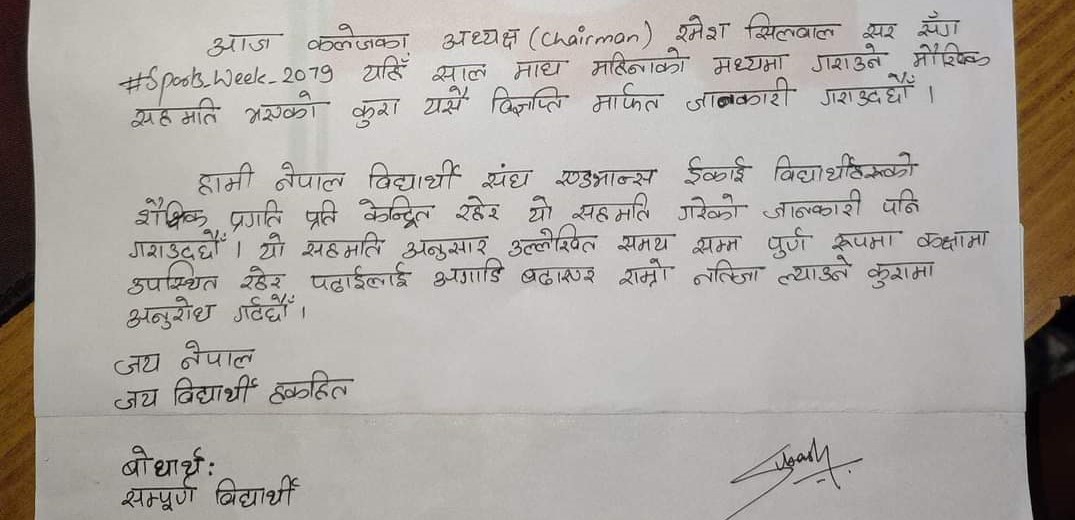 आज कलेजका अध्यक्ष (Chairman) रमेश सिलवाल सर सँग
#Sports_Week_2079 यहिँ साल माघ महिनाको मध्यमा गराउने मौखिक
सहमति भएको कुरा यसै विज्ञप्ति मार्फत जानकारी गराउदछौँ ।
हामी नेपाल विद्यार्थी संघ एडभान्स ईकाई विद्यार्थीहरूको
शैक्षिक प्रगति प्रति केन्द्रित रहेर यो सहमति गरेको जानकारी पनि
गराउदछौँ । यो सहमति अनुसार उल्लेखित समय सम्म पुर्ण रूपमा कक्षामा
उपस्थित रहेर पढाईलाई अगाडि बढाएर राम्रो नतिजा ल्याउने कुरामा
अनुरोध गर्दछौँ ।
जय नेपाल
जय विद्यार्थी हकहित
बोधार्थ:
सम्पूर्ण विद्यार्थी